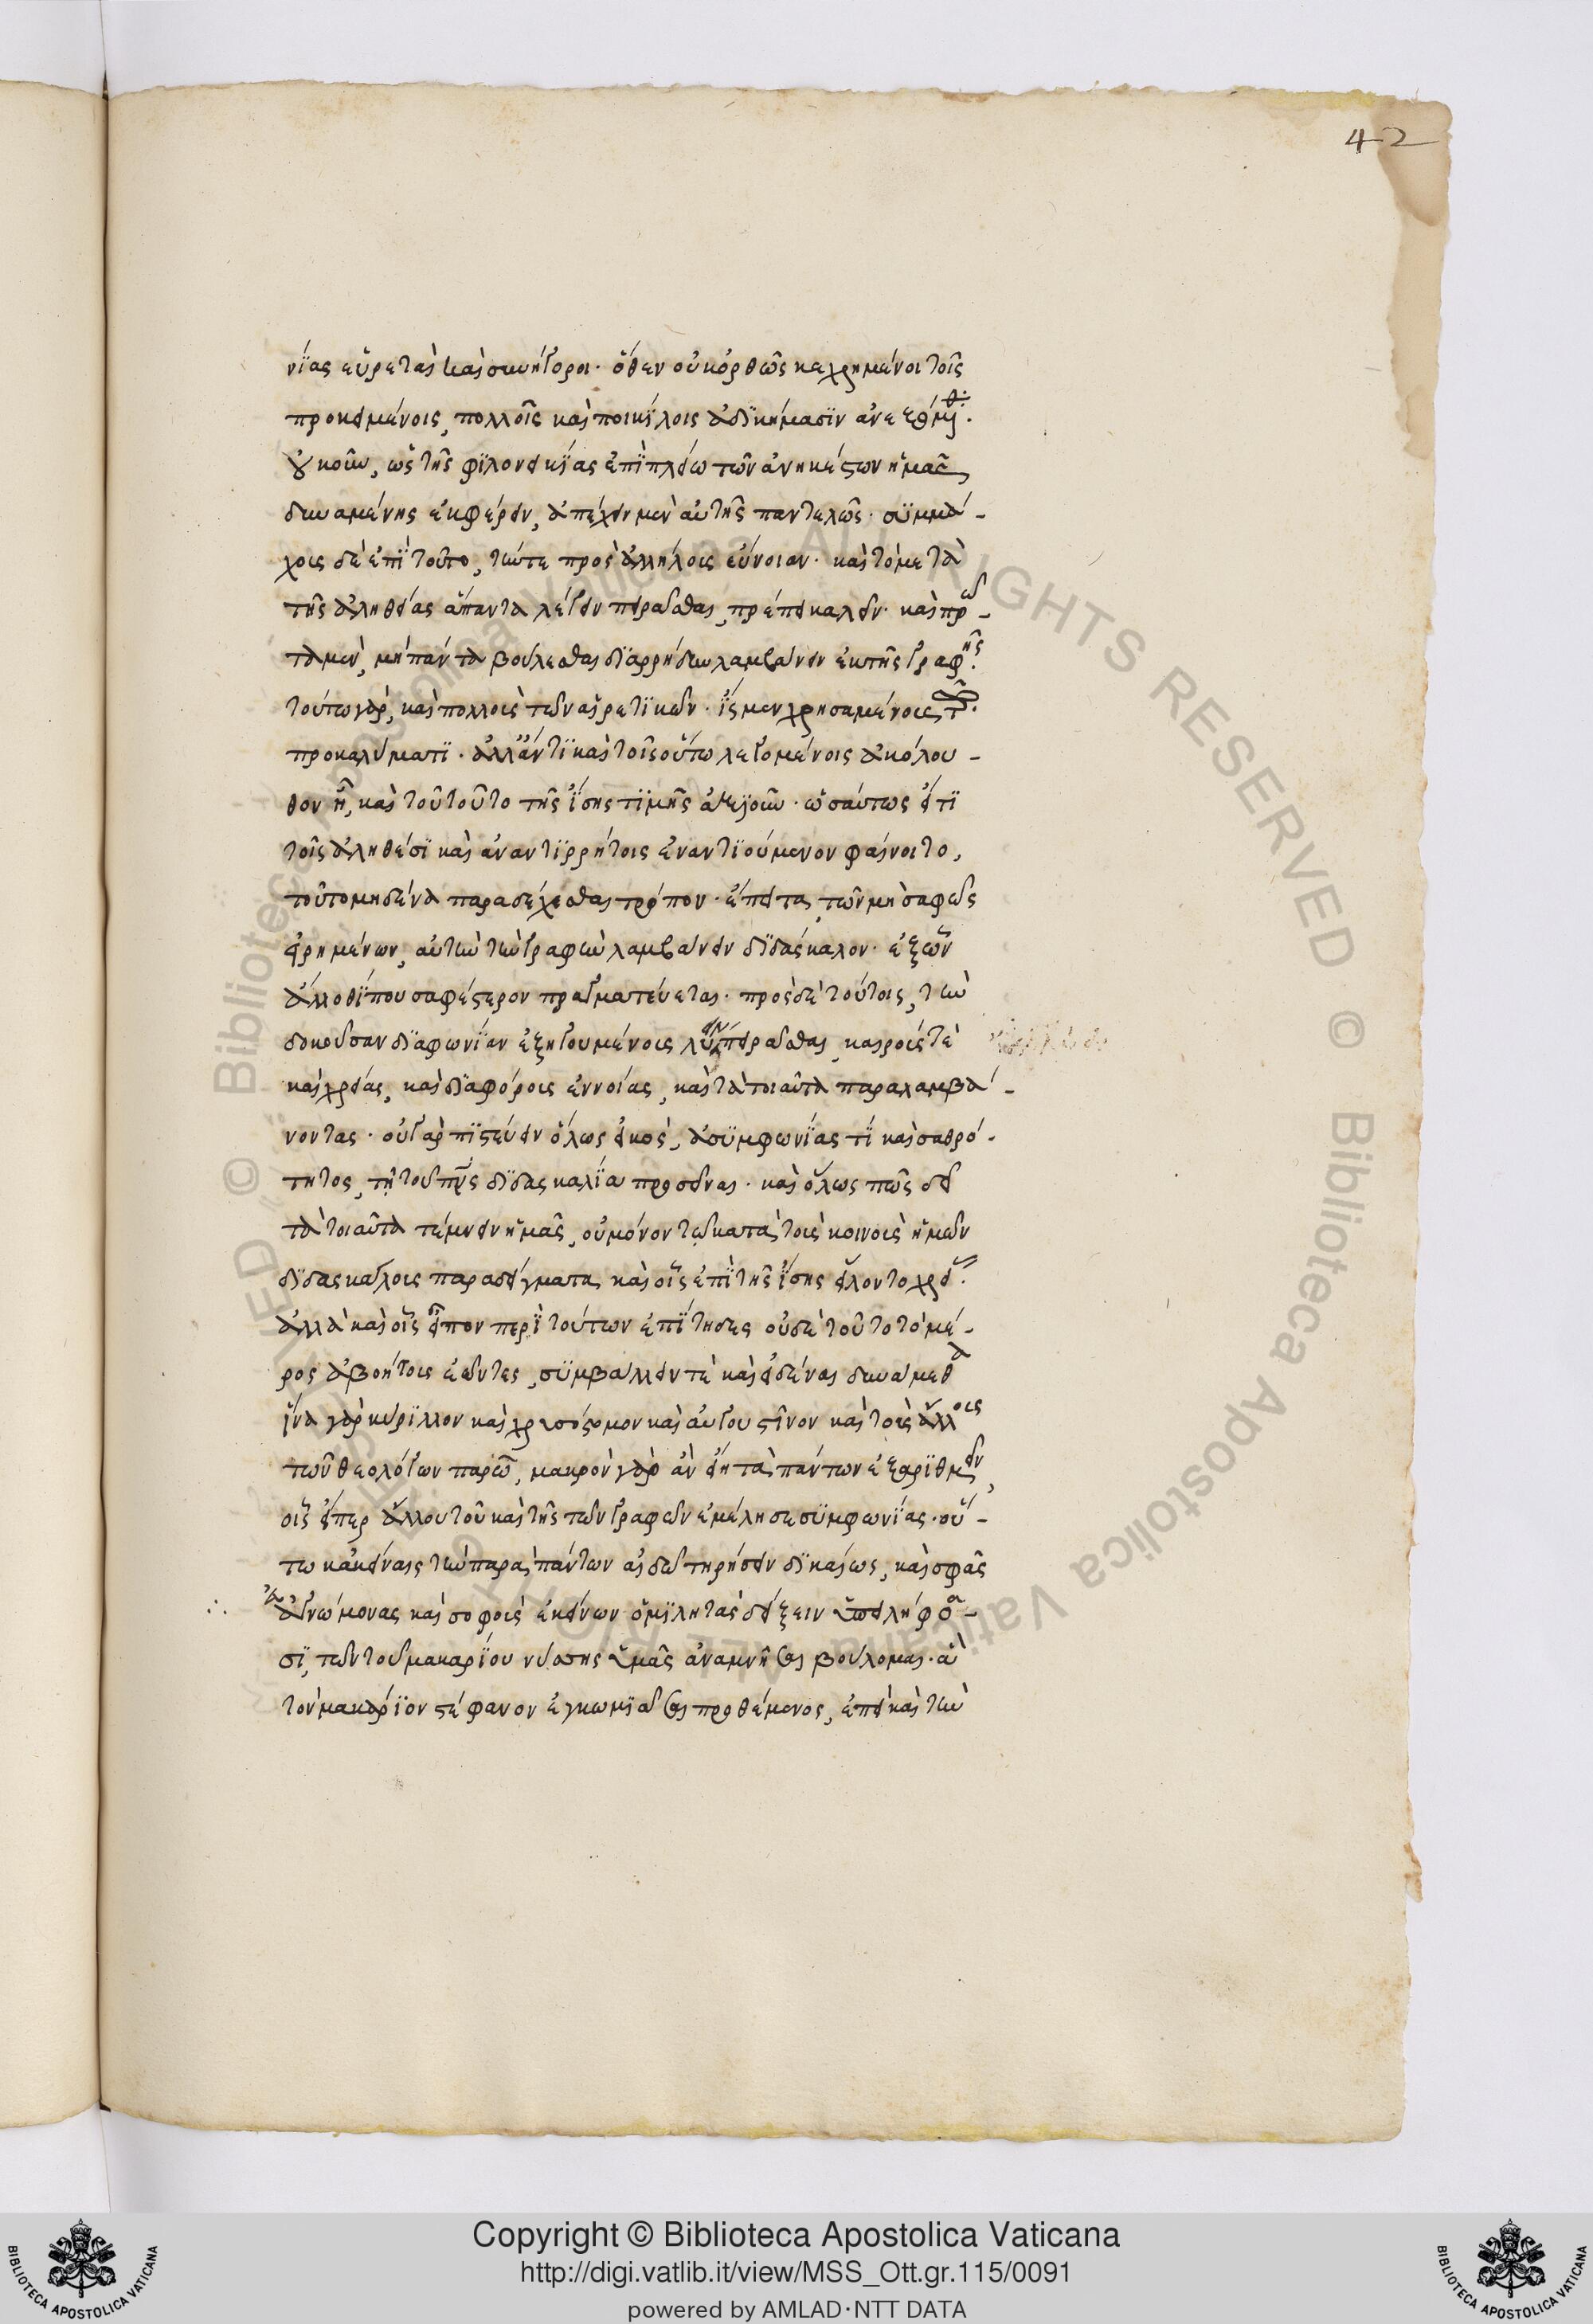 42
νίας εὑρεταὶ καὶ συνήγοροι· ὅθεν οὐκ ὀρθῶς κεχρημένοι τοῖς
προκειμένοις, πολλοῖς καὶ ποικίλοις ἀδικήμασιν
οὐκοῦν, ὡς τῆς φιλονεικίας ἐπιπλέω τῶν ἀνηκέστων ἡμᾶς
δυναμένης ἐκφέρειν, ἀπέχειν μὲν αὐτῆς παντελῶς· συμμά-
χοις δὲ ἐπὶ τοῦτο, τήν τε πρὸς ἀλλήλοις εὔνοιαν· καὶ τὸ μετὰ
τῆς ἀληθείας ἅπαντα λέγειν πειρᾶσθαι, πρέπει καλεῖν· καὶ πρῶ-
τα μὲν, μὴ πάντα βούλεσθαι διαρρήδην λαμβάνειν ἐκ τῆς γραφῆς·
τούτω γὰρ, καὶ πολλοὺς τῶν αἱρετικῶν· ἴσμεν χρησαμένους
προκαλύματι· ἀλλ' ἄν τι καὶ τοῖς οὕτω λεγομένοις ἀκόλου-
θον ᾖ, καὶ τοῦτο τῆς ἴσης τιμῆς ἀξιοῦν· ὡσαύτως εἴ τι
τοῖς ἀληθέσι καὶ ἀναντιρρήτοις ἐναντιούμενον φαίνοιτο,
τοῦτο μηδένα παραδέχεσθαι τρόπον· ἔπειτα, τῶν μὴ σαφῶς
εἰρημένων, αὐτὴν τὴν γραφὴν λαμβάνειν διδάσκαλον· ἐξ ὧν
ἄλλοθί που σαφέστερον πραγματεύεται· πρὸς δὲ τούτοις, τὴν
δοκοῦσαν διαφωνίαν ἐξηγουμένοις λύειν πειρᾶσθαι, καιρούς τὲ
καὶ χρείας, καὶ διαφόροις ἐννοίας, καὶ τὰ τοιαῦτα παραλαμβά-
νοντας· οὐ γὰρ πιστεύειν ὅλως εἰκὸς, ἀσυμφωνίας τί καὶ σαθρό-
τητος, τῇ τοῦ πνς διδασκαλία προσεῖναι· καὶ ὅλως πῶς δεῖ
τὰ τοιαῦτα τέμνειν ἡμᾶς, οὐ μόνον τῶ κατὰ τοὺς κοινοὺς ἡμῶν
διδασκάλοις παραδείγματα, καὶ οἷς ἐπὶ τῆς ἴσης εἵλοντο χρεί
ἀλλὰ καὶ οἷς εἶπον περὶ τούτων ἐπίτηδες οὐδὲ τοῦτο τὸ μέ-
ρος ἀβοήτοις ἐῶντες, συμβάλλειν τὲ καὶ εἰδέναι δυνάμεθα
ἵνα γὰρ κύριλλον καὶ χρυσόστομον καὶ αὐγουστῖνον καὶ τοὺς ἄλλοις
τῶν θεολόγων παρῶ, μακρὸν γὰρ ἂν εἴη τὰ πάντων ἐξαριθμεῖν,
οἷς εἴπερ ἄλλου του καὶ τῆς τῶν γραφῶν ἐμέλησε συμφωνίας· οὕ-
τω κἀκείναις τὴν παρὰ πάντων αἰδῶ τηρήσειν δικαίως, καὶ σφᾶς
εὐγνώμονας καὶ σοφοὺς ἐκείνων ὁμιλητὰς δείξειν ὑπειλήφα-
σι, τῶν τοῦ μακαρίου νύσσης ὑμᾶς ἀναμνῆσαι βούλομαι·
τὸν μακάριον στέφανον ἐγκωμιάσαι προθέμενος, ἐπεὶ καὶ τὴν
Copyright © Biblioteca Apostolica Vaticana
http://digi.vatlib.it/view/MSS_Ott.gr.115/0091
powered by AMLAD·NTT DATA